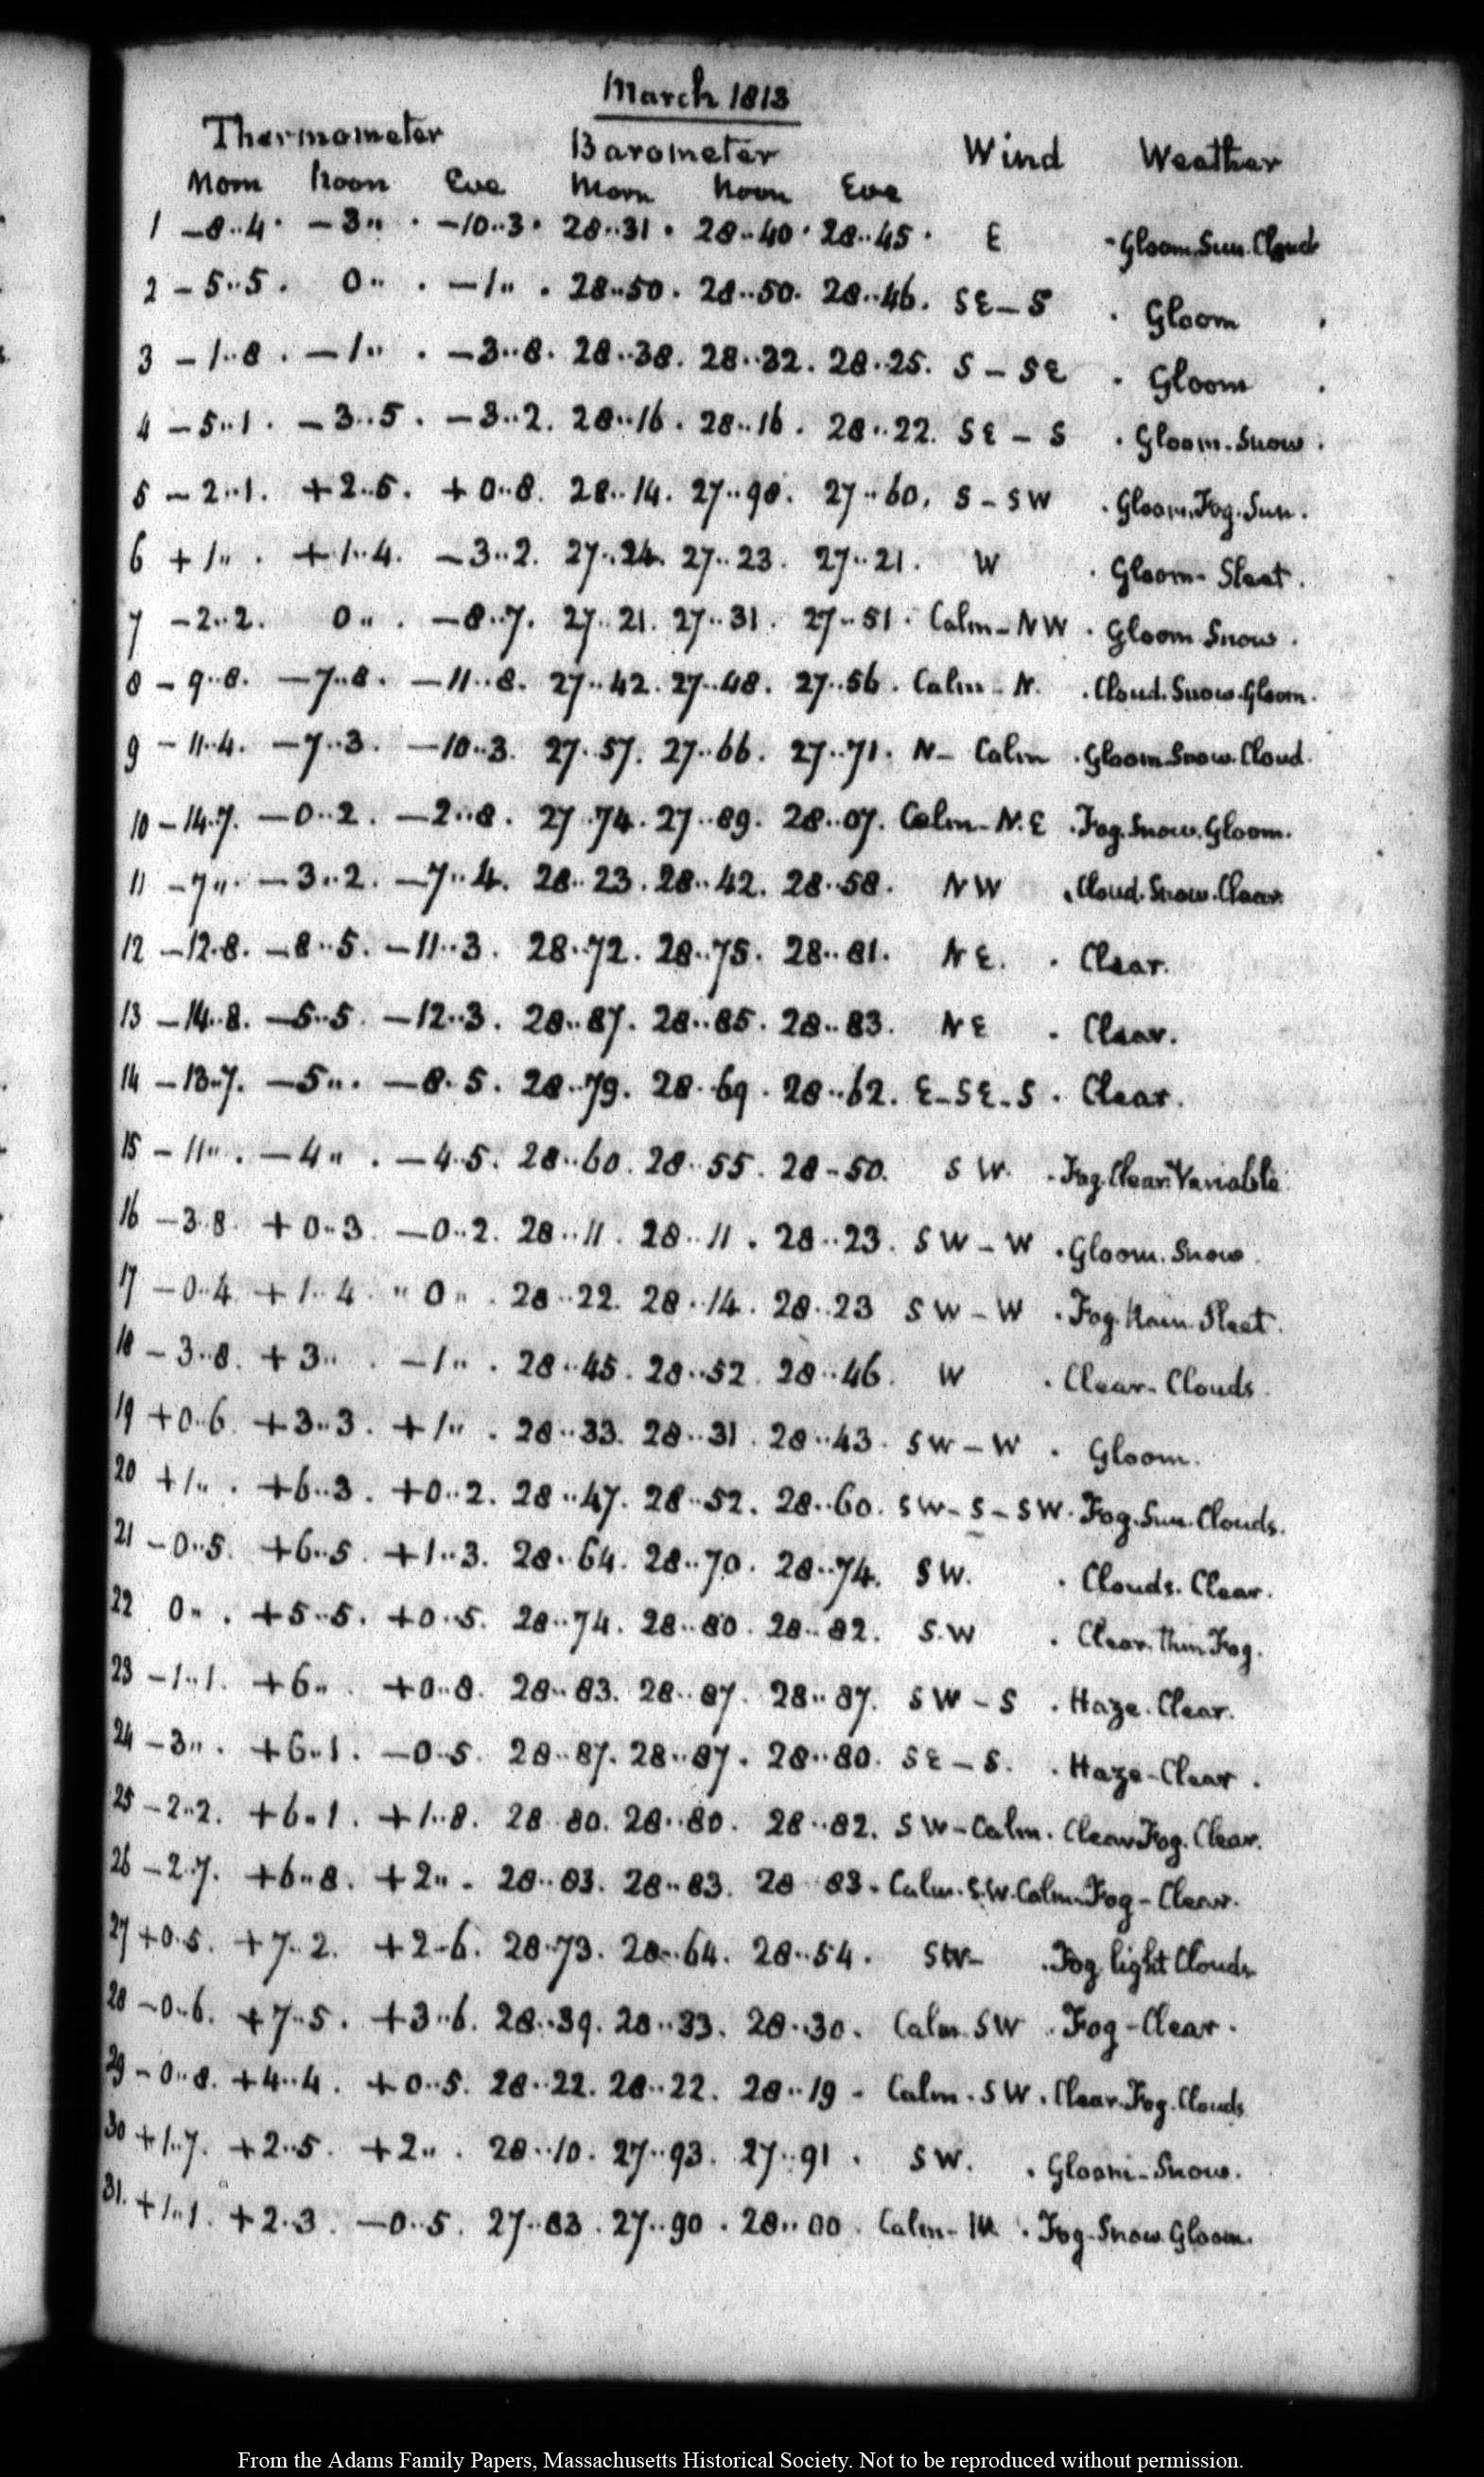 March 1813
Thermometer Barometer Wind Weather
Morn Noon Eve Morn Noon Eve
1 -8..4. -3.. . -10..3. 28..31. 28..40. 28..45. E . Gloom. Sun. Cloud
2 -5..5. 0.. . -1.. . 28..50. 28..50. 28..46. SE-S . Gloom .
3 -1..8. -1.. . -3..8. 28..38. 28..32. 28..25. S-SE . Gloom .
4 -5..1. -3..5. -3..2. 28..16. 28..16. 28..22. SE-S . Gloom. Snow.
5 -2..1. +2..5. +0..8. 28..14. 27..90. 27..60. S-SW . Gloom. Fog. Sun.
6 +1.. . +1..4. -3..2. 27..24. 27..23. 27..21. W . Gloom- Sleet.
7 -2..2. 0.. . -8..7. 27..21. 27..31. 27..51. Calm-NW . Gloom Snow.
8 -9..8. -7..8. -11..8. 27..42. 27..48. 27..56. Calm-N. . Cloud. Snow. Gloom.
9 -11..4. -7..3. -10..3. 27..57. 27..66. 27..71. N-Calm . Gloom Snow. Cloud.
10 -14..7. -0..2. -2..8. 27..74. 27..89. 28..07. Calm-N.E . Fog. Snow. Gloom.
11 -7.. . -3..2. -7..4. 28..23. 28..42. 28..58. NW . Cloud. Snow. Clear.
12 -12..8. -8..5. -11..3. 28..72. 28..75. 28..81. NE. . Clear.
13 -14..8. -5..5. -12..3. 28..87. 28..85. 28..83. NE . Clear.
14 -13..7. -5.. . -8..5. 28..79. 28..69. 28..62. E-SE-S . Clear.
15 -11.. . -4.. . -4..5. 28..60. 28..55. 28-50. SW. . Fog. Clear. Variable
16 -3..8. +0..3. -0..2. 28..11. 28..11. 28..23. SW-W . Gloom. Snow.
17 -0..4. +1..4 " 0.. . 28..22. 28..14. 28..23 SW-W . Fog. Rain. Sleet.
18 -3..8. +3.. . -1.. . 28..45. 28..52. 28..46. W . Clear- Clouds.
19 +0..6. +3..3. +1.. . 28..33. 28..31. 28..43. SW-W . Gloom.
20 +1.. . +6..3. +0..2. 28..47. 28..52. 28..60. SW-S-SW. Fog. Sun. Clouds.
21 -0..5. +6..5. +1..3. 28..64. 28..70. 28..74. SW. . Clouds. Clear.
22 0.. . +5..5. +0..5. 28..74. 28..80. 28..82. S.W . Clear. thin Fog.
23 -1..1. +6.. . +0..8. 28..83. 28..87. 28..87. SW-S . Haze. Clear.
24 -3.. . +6..1. -0..5. 28..87. 28..87. 28..80. SE-S. . Haze-Clear.
25 -2..2. +6..1. +1..8. 28..80. 28..80. 28..82. SW-Calm. Clear. Fog. Clear.
26 -2..7. +6..8. +2.. . 28..83. 28..83. 28 83. Calm. S.W. Calm. Fog-Clear.
27 +0..5. +7..2. +2..6. 28..73. 28..64. 28..54. SW- . Fog light Clouds
28 -0..6. +7..5. +3..6. 28..39. 28..33. 28..30. Calm. SW . Fog-Clear.
29 -0..8. +4..4. +0..5. 28..22. 28..22. 28..19- Calm. SW. Clear. Fog. Clouds
30 +1..7. +2..5. +2.. . 28..10. 27..93. 27..91. SW. . Gloom-Snow.
31. +1..1. +2..3. -0..5. 27..83. 27..90. 28..00. Calm- . Fog-Snow. Gloom.
From the Adams Family Papers, Massachusetts Historical Society. Not to be reproduced without permission.